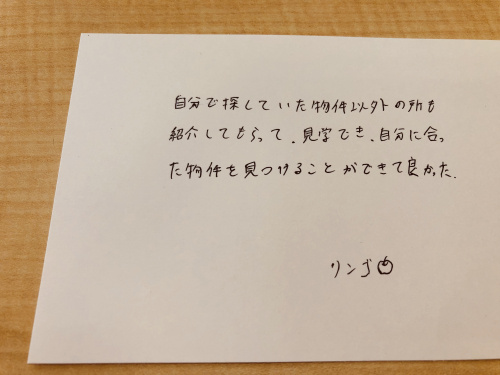 自分で探していた物件以外の所も
紹介してもらって、見学でき、自分に合っ
た物件を見つけることができて良かった.
リンゴ